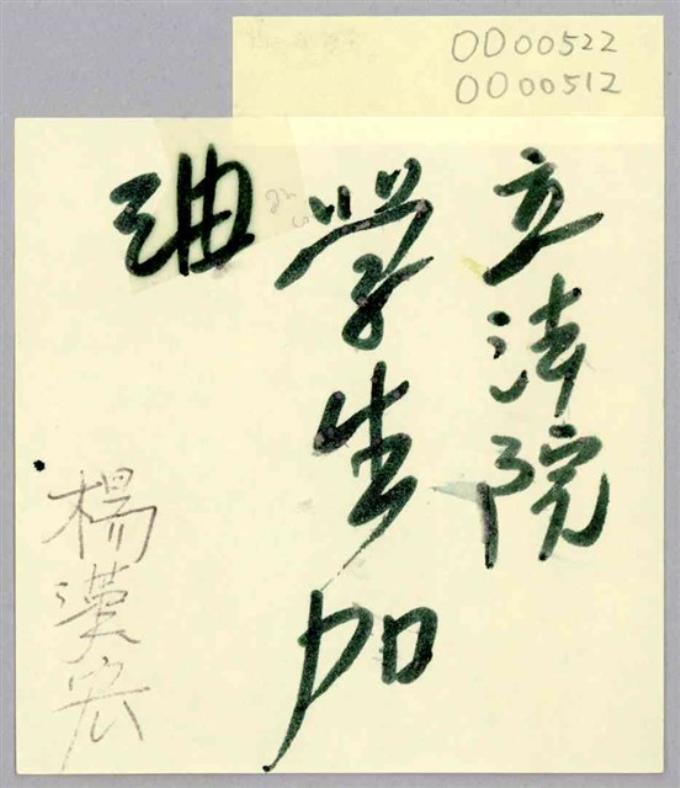 OD00522
OD00512
立法院
学生加
油
楊漢宏